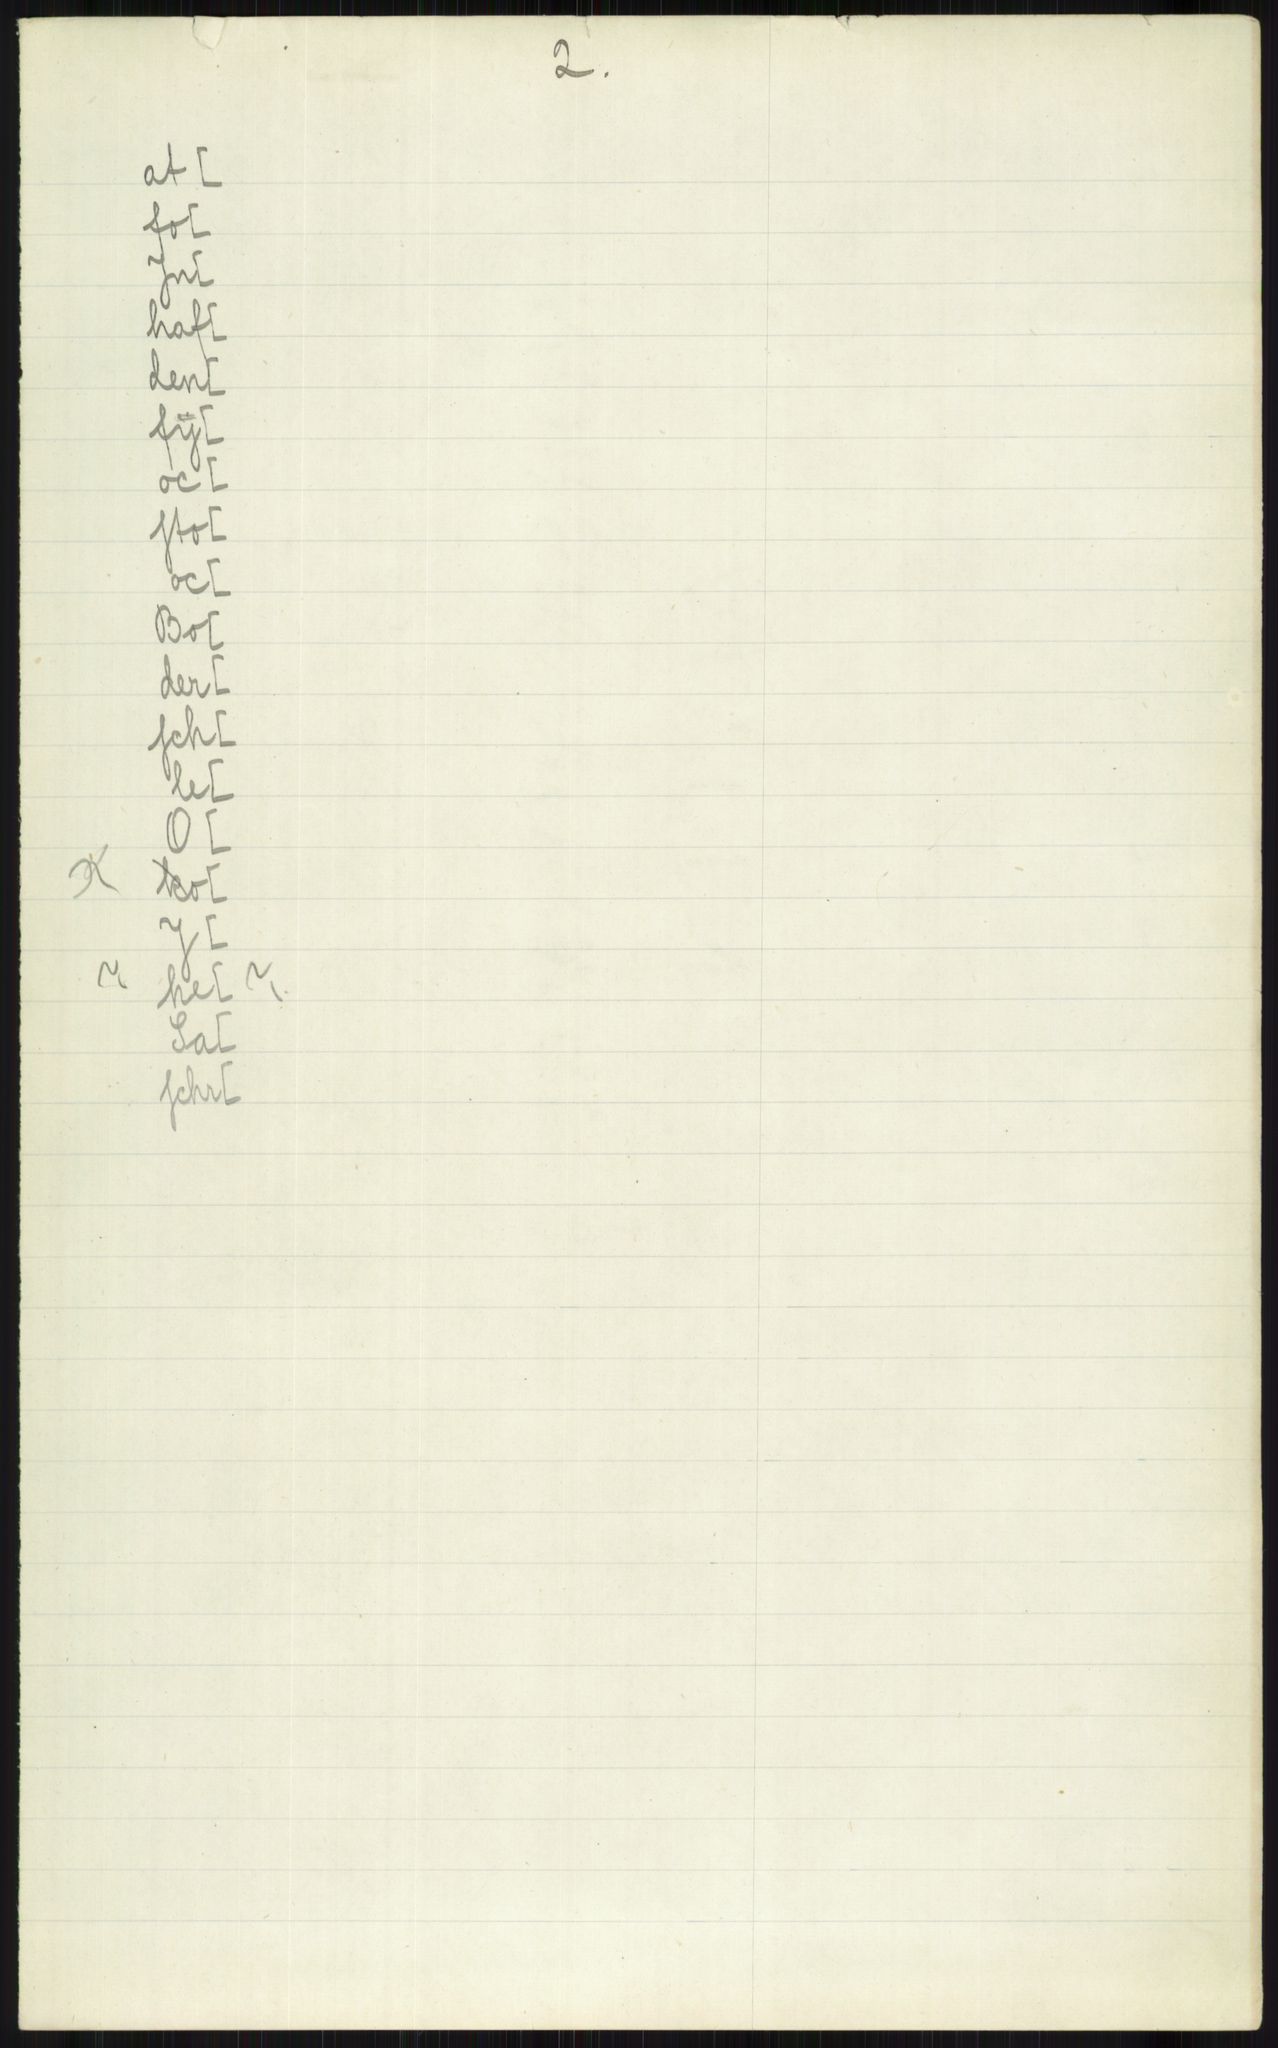 2.
at [
fo[
Jn[
haf[
den[
fÿ[
oc[
ſto[
oc[
Bo[
der[
ſch[
le[
O [
ko[
J [
he[
Sa[
ſchr[